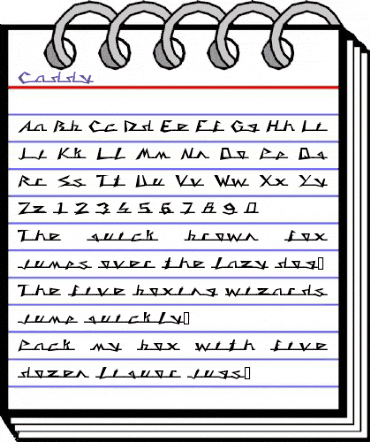 Caddy
Aa Bb Cc Dd Ee Ff Gg Hh Ii
Jj Kk Ll Mm Nn Oo Pp Qq
Rr Ss Tt Uu Vv Ww Xx Yy
Zz 1 2 3 4 5 6 7 8 9 0
The quick brown fox
jumps over the lazy dog▯
The five boxing wizards
jump quickly▯
Pack my box with five
dozen liquor jugs▯